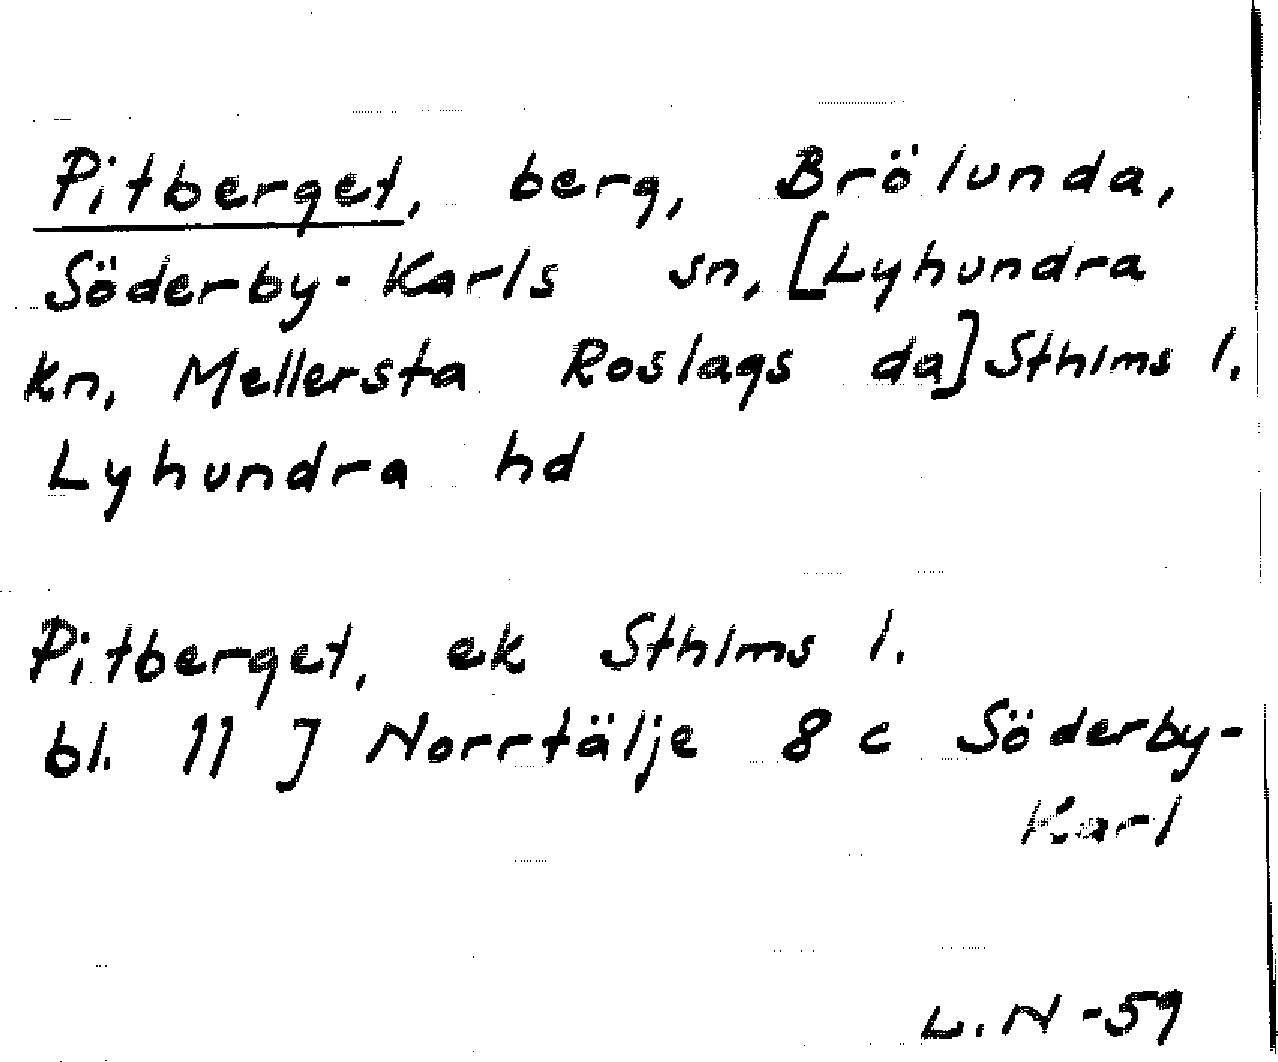 Pitberget, berg, Brölunda,
Söderby-Karls sn, [Lyhundra
kn, Mellersta Roslags da] Sthlms l.
Lyhundra hd
Pitberget, ek Sthlms l.
bl. 11 J Norrtälje 8 c Söderby-
Karl
L. N -59